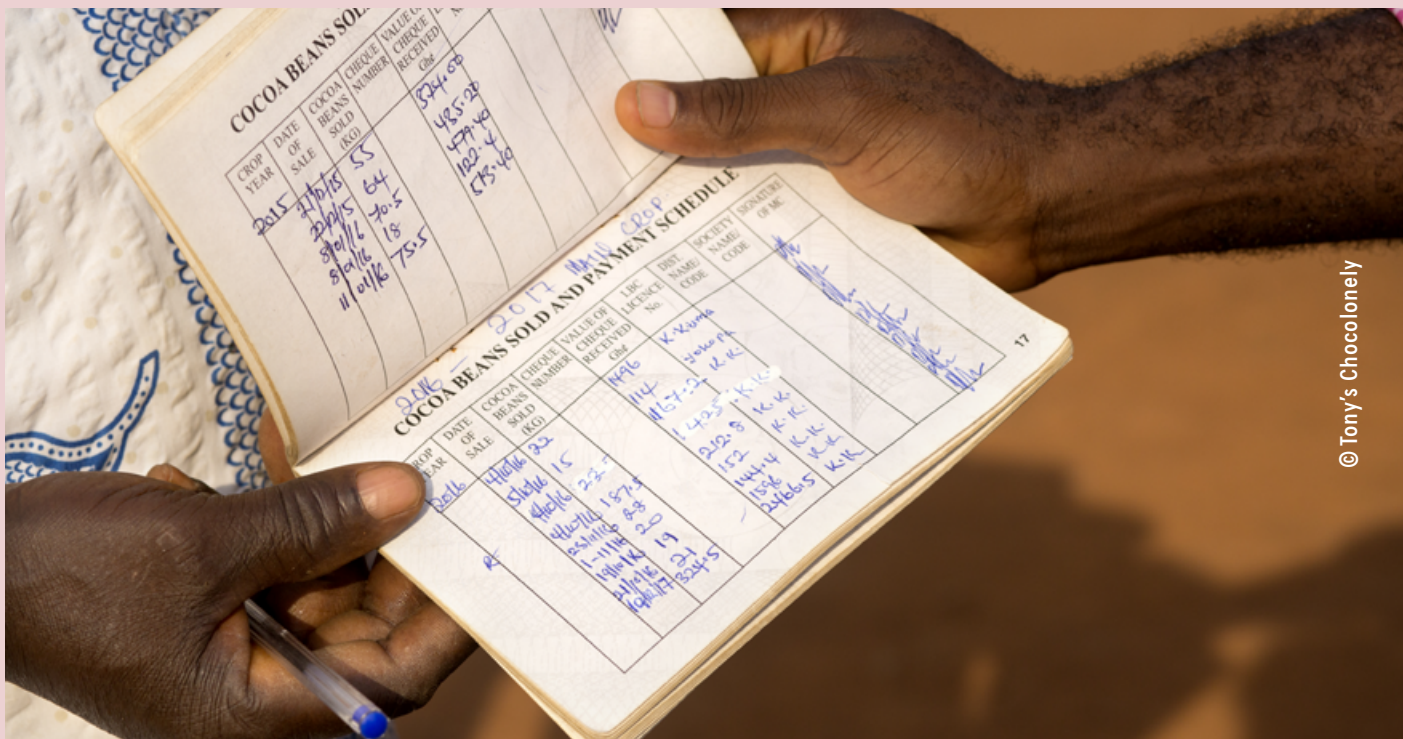 COCOA BEANS SOL
CROP YEAR DATE OF SALE COCOA BEANS SOLD (KG) CHEQUE NUMBER VALUE OF CHEQUE RECEIVED Gh¢
2015 55 374.00
64 435.20
8/01/16 70.5 479.40
8/01/16 18 122.4
11/01/16 75.5 513.40
2016 - 2017 MAIN CROP
COCOA BEANS SOLD AND PAYMENT SCHEDULE
CROP YEAR DATE OF SALE COCOA BEANS SOLD (KG) CHEQUE NUMBER VALUE OF CHEQUE RECEIVED Gh¢ LBC LICENCE No. DIST. NAME/ CODE SOCIETY NAME/ CODE SIGNATURE OF MC
2016 4/10/16 22 K. Kuma
5/10/16 15 114
22.5 K.K.
187.5 1,425 K.K.
28 212.8 K.K.
20 152 K.K.
19/10/16 19 144.4 K.K.
21 K.K.
324.5 2466.5 K.K.
17
© Tony's Chocolonely